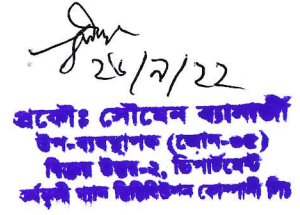 ২৬/৯/২২
প্রকৌঃ সৌমেন ব্যানার্জী
উপ-ব্যবস্থাপক (জোন-০৫)
বিক্রয় উত্তর-২, ডিপার্টমেন্ট
কর্ণফুলী গ্যাস ডিস্ট্রিবিউশন কোম্পানী লিঃ